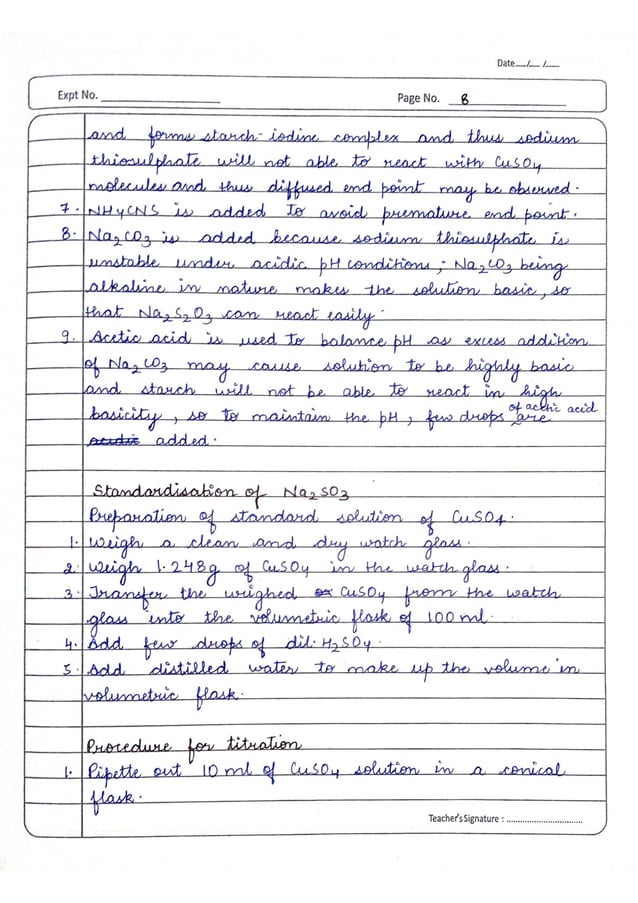 Date__/__/__
Expt No. ____________
Page No. 8
and forms starch-iodine complex and thus sodium
thiosulphate will not able to react with CuSO4
molecules and thus diffused end point may be observed.
7. NH4CNS is added to avoid premature end point.
8. Na2CO3 is added because sodium thiosulphate is
unstable under acidic pH conditions, Na2CO3 being
alkaline in nature makes the solution basic, so
that Na2S2O3 can react easily.
9. Acetic acid is used to balance pH as excess addition
of Na2CO3 may cause solution to be highly basic
and starch will not be able to react in high
basicity, so to maintain the pH, few drops of acetic acid are
acidic added.
Standardisation of Na2SO3
Preparation of standard solution of CuSO4.
1. Weigh a clean and dry watch glass.
2. Weigh 1.248g of CuSO4 in the watch glass.
3. Transfer the weighed CuSO4 from the watch
glass into the volumetric flask of 100 ml.
4. Add few drops of dil. H2SO4.
5. Add distilled water to make up the volume in
volumetric flask.
Procedure for titration
1. Pipette out 10 ml of CuSO4 solution in a conical
flask.
Teacher's Signature : ................................